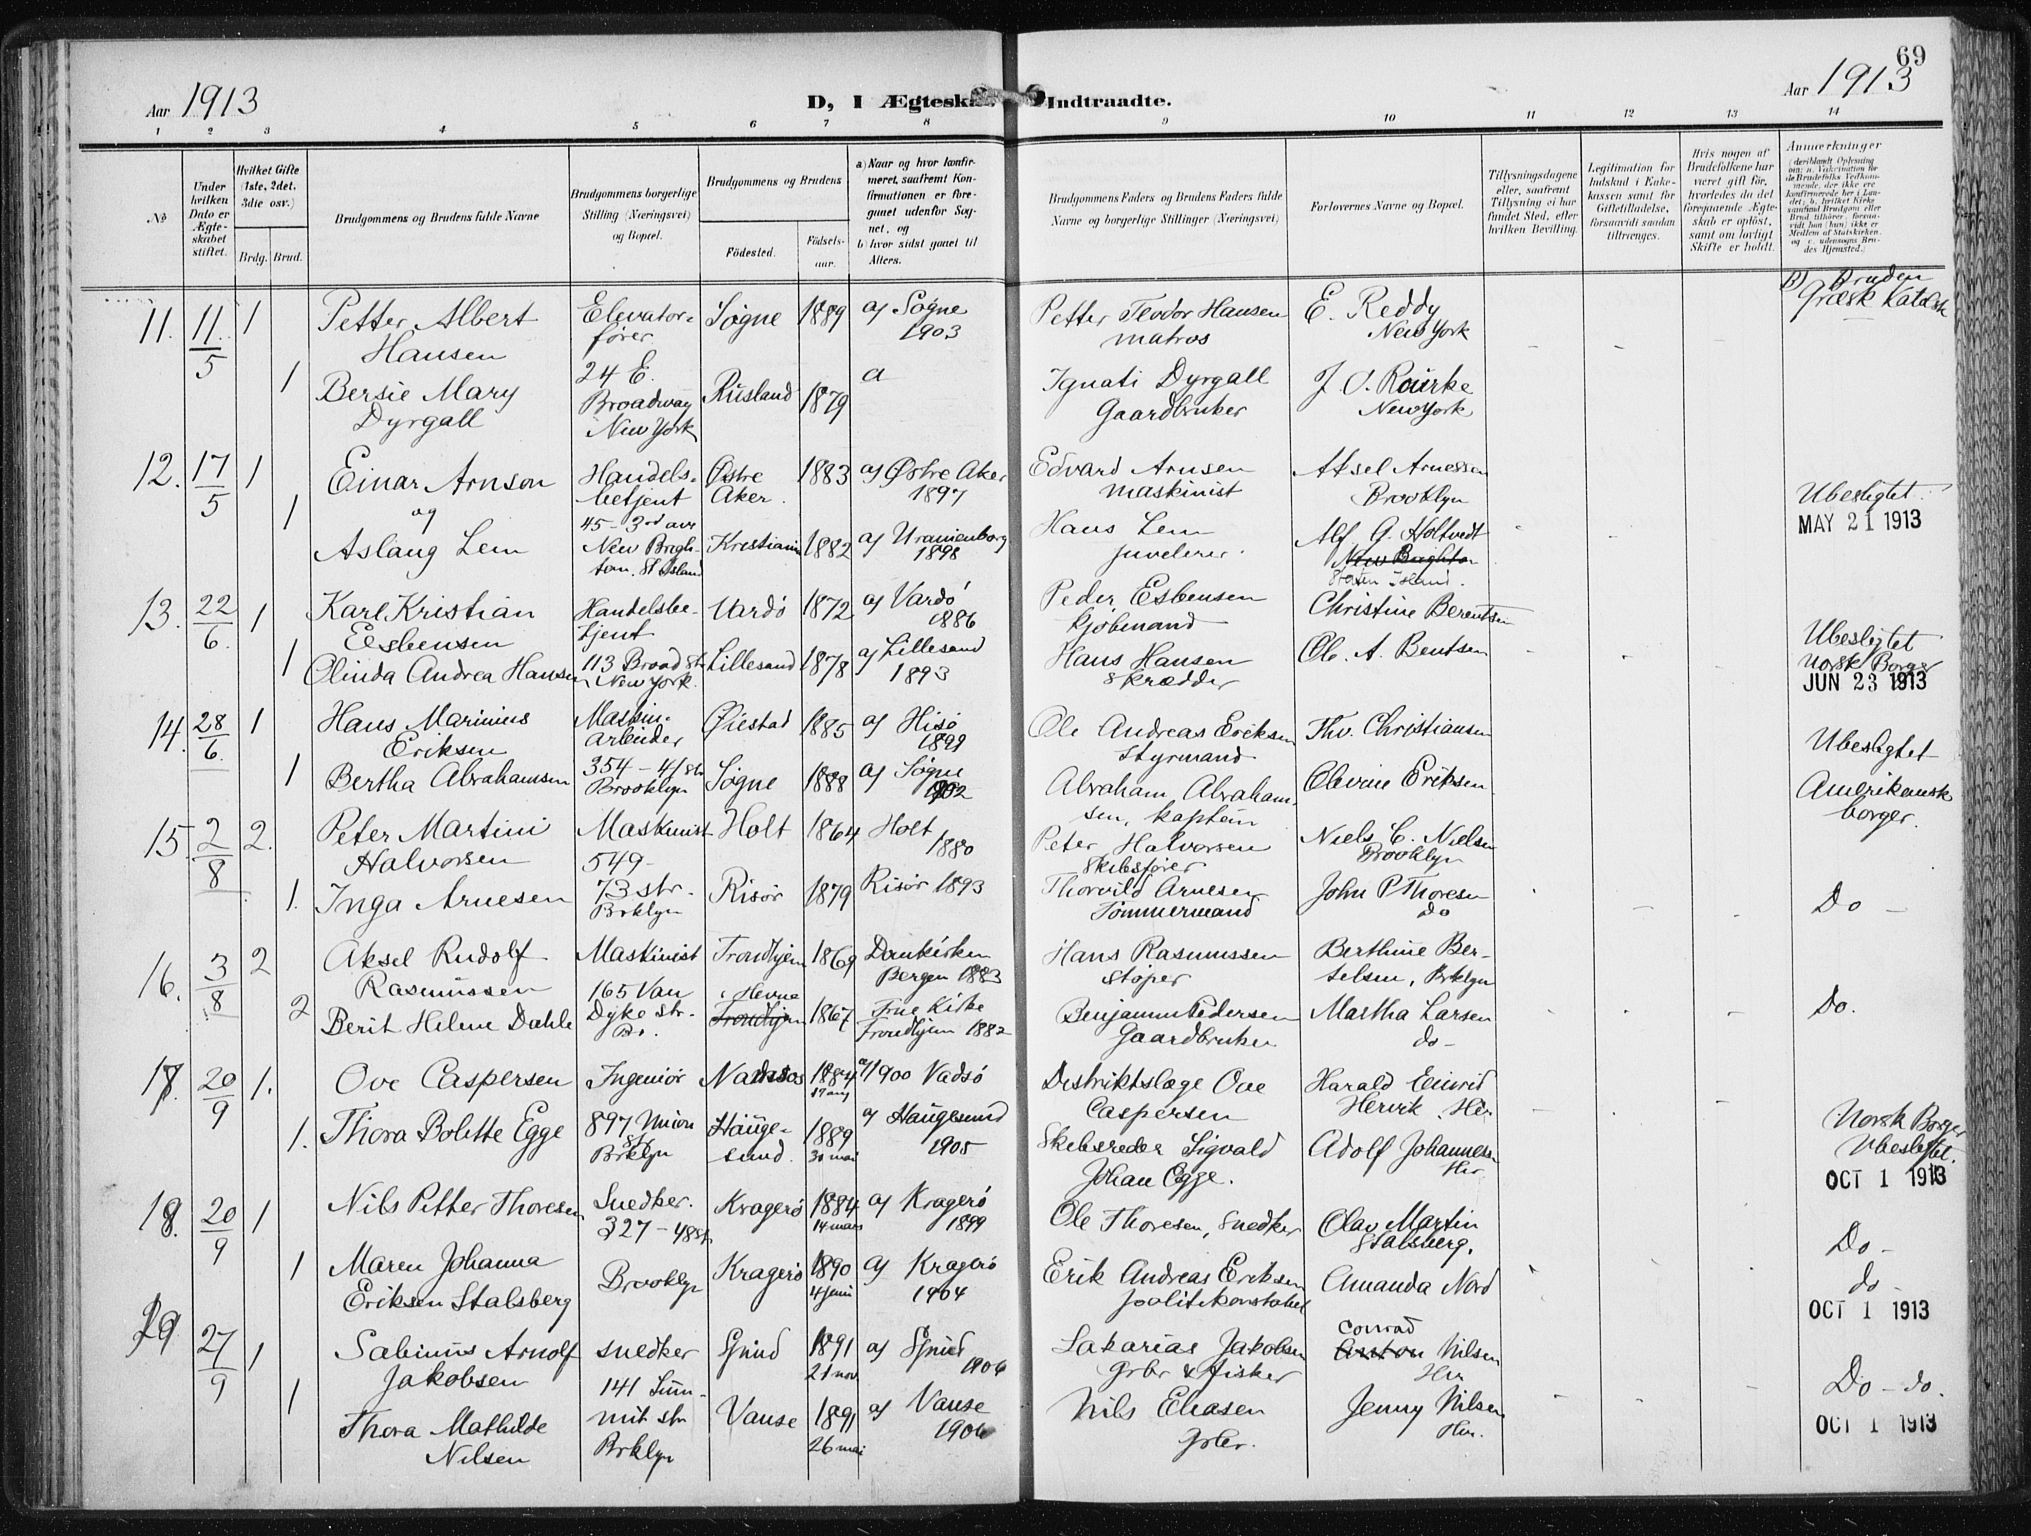 69
Aar 1913
D, I Ægteska
Indtraadte.
Aar 1913
1 2 3 4 5 6 7 8 9 10 11 12 13 14
No
Under hvilken Dato er Ægteskabet stiftet.
Hvilket Gifte (1ste, 2det, 3die osv.)
Brdg. Brud.
Brudgommens og Brudens fulde Navne
Brudgommens borgerlige Stilling (Næringsvei) og Bopæl.
Brudgommens og Brudens
Födested.
Födselsaar.
a) Naar og hvor konfirmeret, saafremt Konfirmationen er foregaaet udenfor Sognet, og
b) hvor sidst gaaet til Alters.
Brudgommens Faders og Brudens Faders fulde Navne og borgerlige Stillinger (Næringsvei)
Forlovernes Navne og Bopæl.
Tillysningsdagene eller, saafremt Tillysning ei har fundet Sted, efter hvilken Bevilling.
Legitimation for Indskud i Enkekassen samt for Giftetilladelse, forsaavidt saadan tiltrænges.
Hvis nogen af Brudefolkene har været gift før, hvorledes da det foregaaende Ægteskab er oplöst, samt om lovligt Skifte er holdt.
Anmærkninger
11. 11/5 1 Petter Albert Hansen
Elevatorfører
Søgne 1889 a) Søgne 1903
Petter Teodor Hansen matros
E. Reddy New York
B) Bruden græsk Katolsk
1 Bersie Mary Dyrgall
24 E. Broadway New York
Rusland 1879 a
Ignati Dyrgall Gaardbruker
J. O. Rourke New York
12. 17/5 1 Einar Arnson
og
Handelsbetjent
Østre Aker. 1883 a) Østre Aker 1897
Edvard Arnsen maskinist
Aksel Arnessen Brooklyn
Ubeslegtet
MAY 21 1913
1 Aslaug Lem
45 - 3rd ave New Brighton. St. Island
Kristiania 1882 a) Uranienborg 1898
Hans Lem juvelerer.
Alf G. Holtvedt
New Brighton
Staten Island.
13. 22/6. 1 Karl Kristian Esbensen
Handelsbetjent
Vardö 1872 a) Vardö 1886
Peder Esbensen kjöbmand
Christine Berentsen
1 Olinda Andrea Hansen
113 Broad str. New York.
Lillesand 1878 a) Lillesand 1893
Hans Hansen skrædder
Ole. A. Bentsen
Ubeslegtet
Norsk Borger
JUN 23 1913
14. 28/6. 1 Hans Marinius Eriksen
Maskinarbeider
Øiestad 1885 a) Hisö 1899
Ole Andreas Eriksen styrmand
Thv. Christiansen
Ubeslegtet
1 Bertha Abrahamsen
354 - 41 str Brooklyn
Søgne 1888 a) Søgne 1902
Abraham Abrahamsen, kaptein
Olevine Eriksen
Amerikansk borger.
15 2/8 2. Peter Martini Halvorsen
Maskinist
549 -
Holt 1864 Holt 1880
Peter Halvorsen Skibsfører
Niels C. Nielsen Brooklyn
1. Inga Arnesen
73 str. Brklyn
Risör 1879 Risör 1893
Thorvild Arnesen Tømmermand
John P Thoresen do
Do -
16. 3/8 2 Aksel Rudolf Rasmussen
Maskinist
Trondhjem 1869 Domkirken Bergen 1883
Hans Rasmussen støper
Berthine Bertelsen, Brklyn
2 Berit Helene Dahle
165 Van Dyke str. Br.
Hevne
Trondhjem 1867 Frue Kirke Trondhjem 1882
Benjamin Pedersen Gaardbruker
Martha Larsen do -
Do.
17. 20/9 1. Ove Caspersen
Ingeniör
1884 17 aug a) 1900 Vadsö
Distriktslæge Ove Caspersen
Harald
Hervik. Her
1. Thora Bolette Egge
897 Union str Brklyn
Haugesund. 1889 30 mai a) Haugesund 1905
Skibsreder Sigvald Johan Egge.
Adolf Johannesen Her.
Norsk Borger
Ubeslegtet.
OCT 1 1913
18. 20/9 1 Nils Petter Thoresen
Snedker.
327 - 48 st.
Kragerö 1884 14 mars a) Kragerö 1899
Ole Thoresen, Snedker
Olav Martin Stalsberg.
Do -
1 Maren Johanna Eriksen Stalsberg
Brooklyn
Kragerö 1890 4 juni a) Kragerö 1904
Erik Andreas Eriksen politikonstabel
Amanda Nord
do -
OCT 1 1913
19 27/9 1 Sabinus Arnolf Jakobsen
snedker
1891 21 nov. a) 1906
Sakarias Jakobsen Grbr & fisker
Conrad
Anton Nilsen Her
Do - do.
1 Thora Mathilde Nilsen
141 Summit str Brklyn
Vanse 1891 26 mai a) Vanse 1906
Nils Eliasen Grbr.
Jenny Nilsen Her.
OCT 1 1913